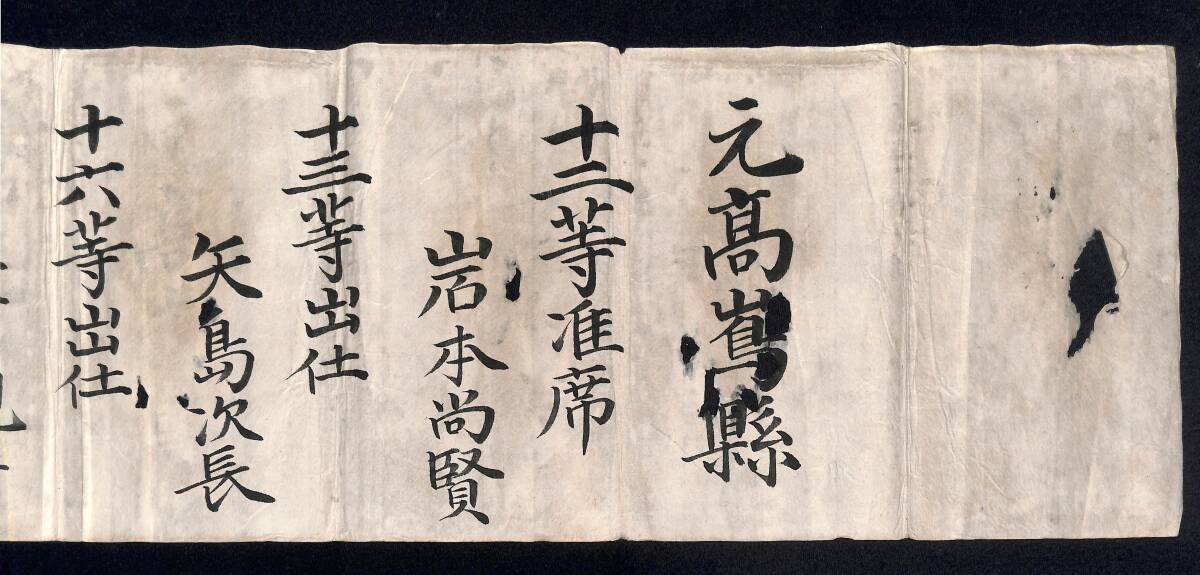 元髙嶌縣
十二等准席
岩本尚賢
十三等出仕
矢島次長
十六等出仕